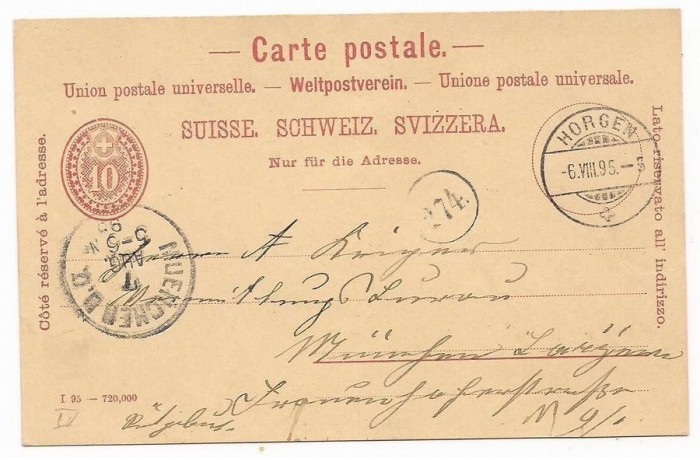 — Carte postale. —
Union postale universelle. — Weltpostverein. — Unione postale universale.
SUISSE. SCHWEIZ. SVIZZERA.
Nur für die Adresse.
Côté réservé à l'adresse.
Lato riservato all' indirizzo.
10
HORGEN
-6.VIII.95.-
274.
MUENCHEN
AUG.
5-6 N
95
Herrn A Krieger
Vermittlungs Bureau
München Bayern
Fraunhoferstrasse
N 9/
I 95 — 720,000